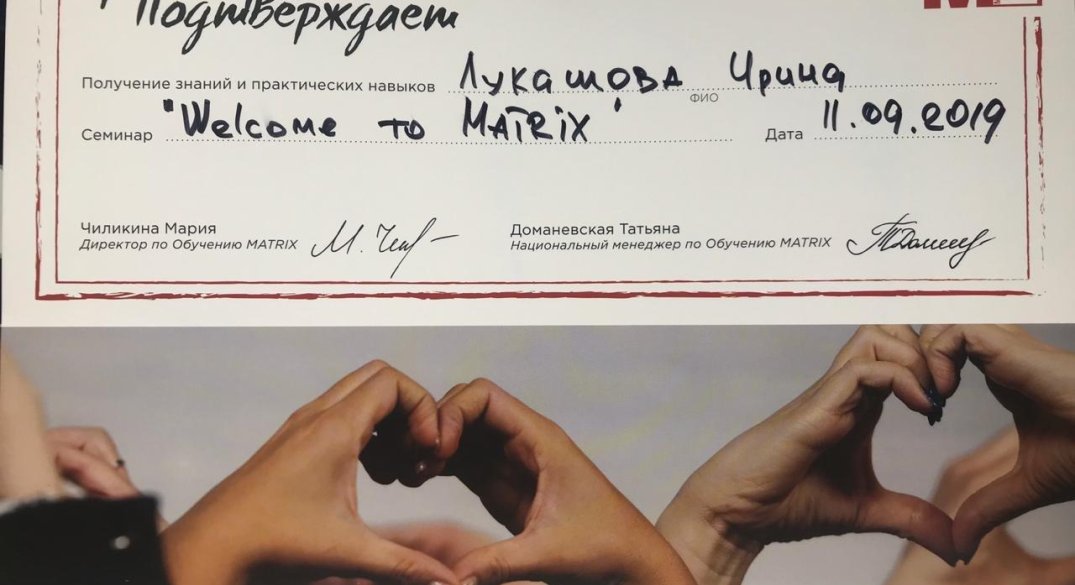 Подтверждает
Получение знаний и практических навыков Лукашова Ирина
ФИО
Семинар "Welcome to MATRiX" Дата 11.09.2019
Чиликина Мария
Директор по Обучению MATRIX
М. Чил
Доманевская Татьяна
Национальный менеджер по Обучению MATRIX